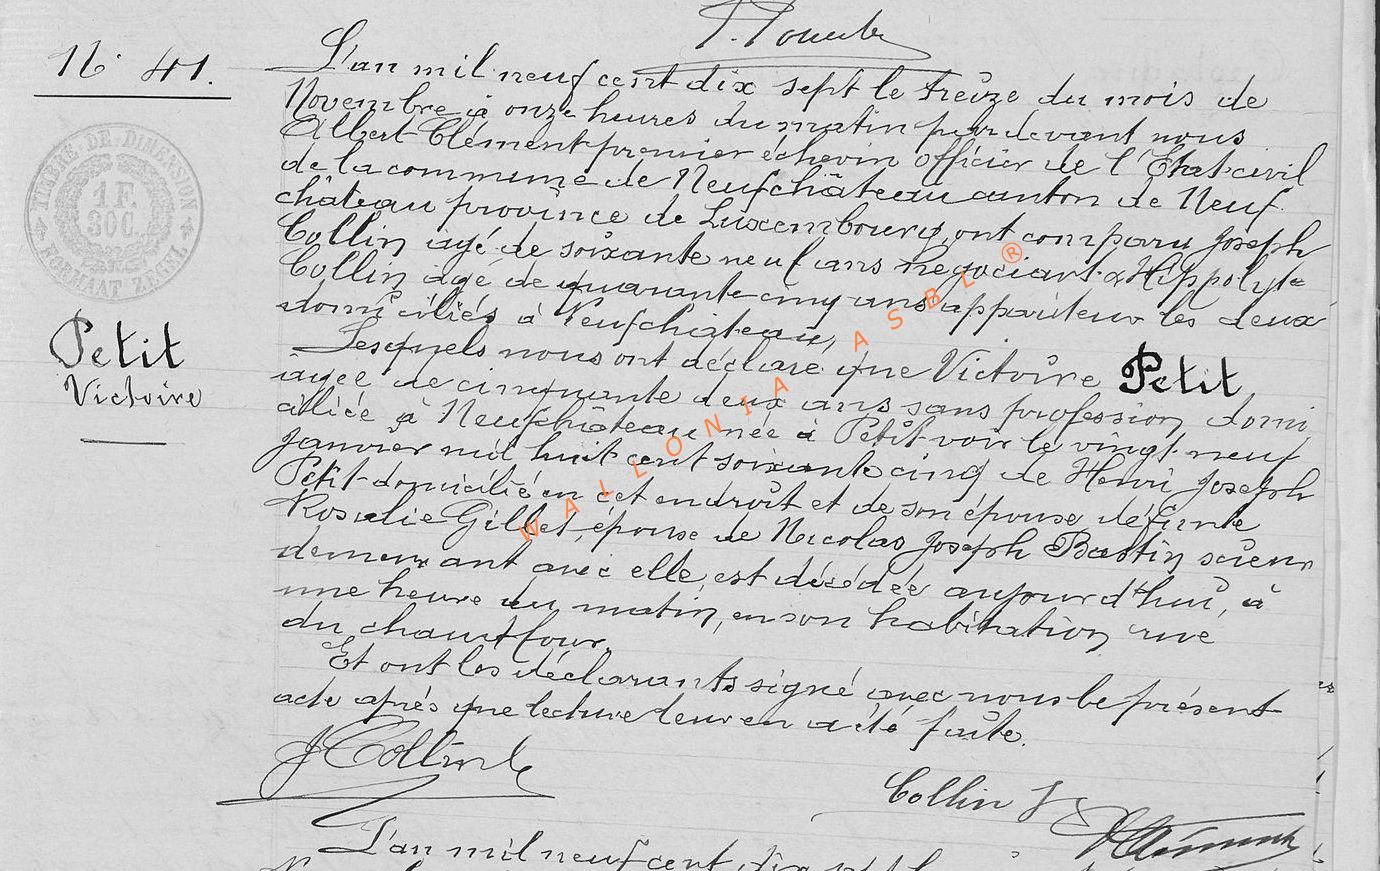 N° 41.
L'an mil neuf cent dix sept le treize du mois de
Novembre à onze heures du matin par devant nous
Albert Clément premier échevin officier de l'Etat-civil
de la commune de Neufchâteau canton de Neuf
château province de Luxembourg, ont comparu Joseph
Collin âgé de soixante neuf ans négociant & Hippolyte
Collin âgé de quarante cinq ans appariteur les deux
domiciliés à Neufchâteau,
Lesquels nous ont déclaré que Victoire Petit
âgée de cinquante deux ans sans profession domi
ciliée à Neufchâteau née à Petitvoir le vingt-neuf
Janvier mil huit cent soixante cinq de Henri Joseph
Petit domicilié en cet endroit et de son épouse défunte
Rosalie Gillet, épouse de Nicolas Joseph Bastin scieur
demeurant avec elle, est décédée aujourd'hui, à
une heure du matin, en son habitation rue
du chauffour.
Et ont les déclarants signé avec nous le présent
acte après que lecture leur en a été faite.
TIMBRE DE DIMENSION
1F.
30C.
FORMAAT ZEGEL
Petit
Victoire
WALLONIA ASBL ®
J Collin
Collin H
AClément
L'an mil neuf cent dix sept le